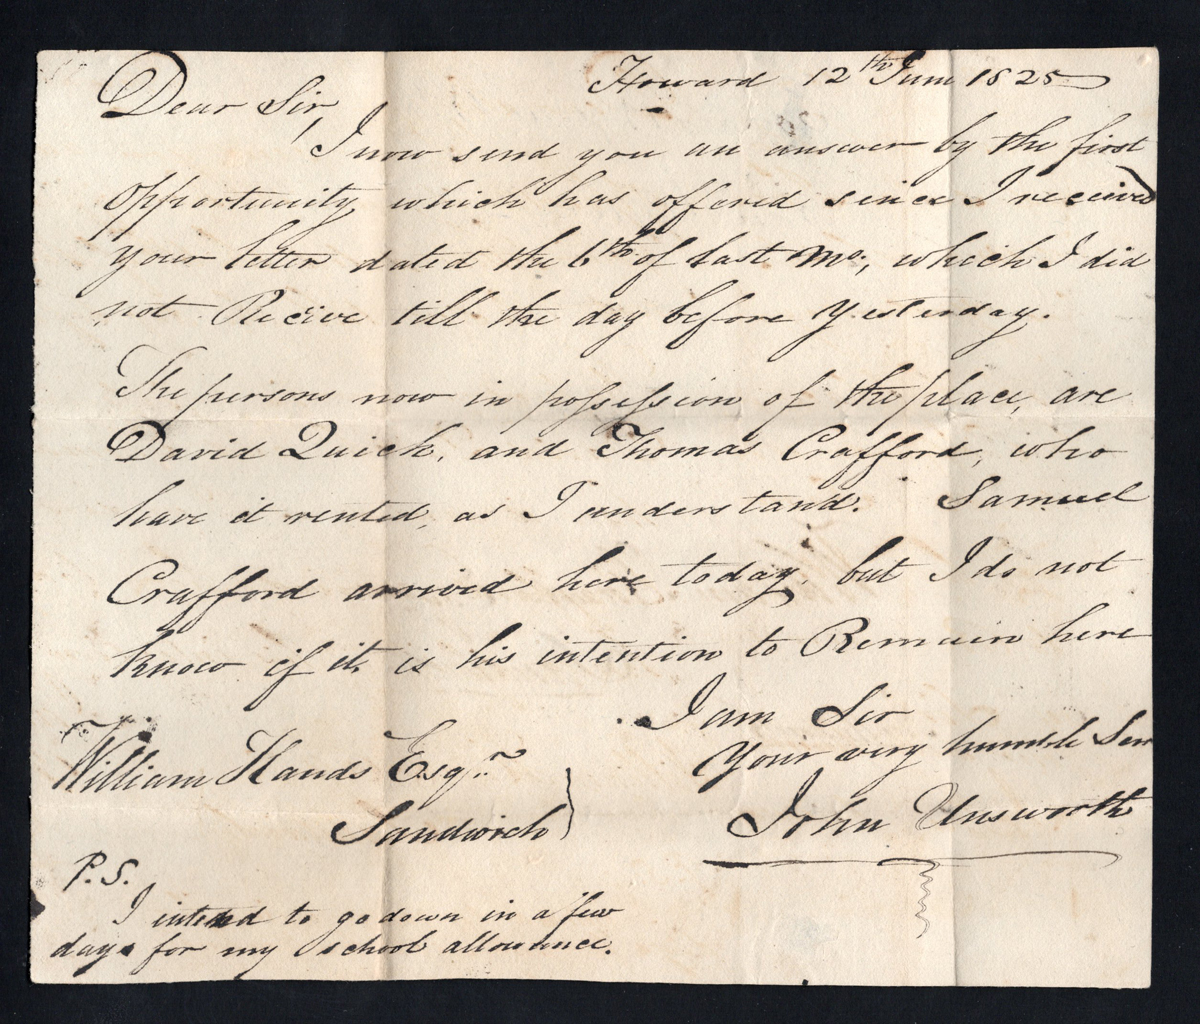 Howard 12th June 1825
Dear Sir,
I now send you an answer by the first
opportunity which has offered since I received
your letter dated the 6th of last Mo., which I did
not Recive till the day before Yesterday.
The persons now in possession of the place, are
David Quick, and Thomas Crafford, who
have it rented, as I understand. Samuel
Crafford arrived here today, but I do not
know if it is his intention to Remain here
I am Sir
Your very humble Serv
William Hands Esqr.
John Unsworth
Sandwich
P.S.
I intend to go down in a few
days for my school allowance.